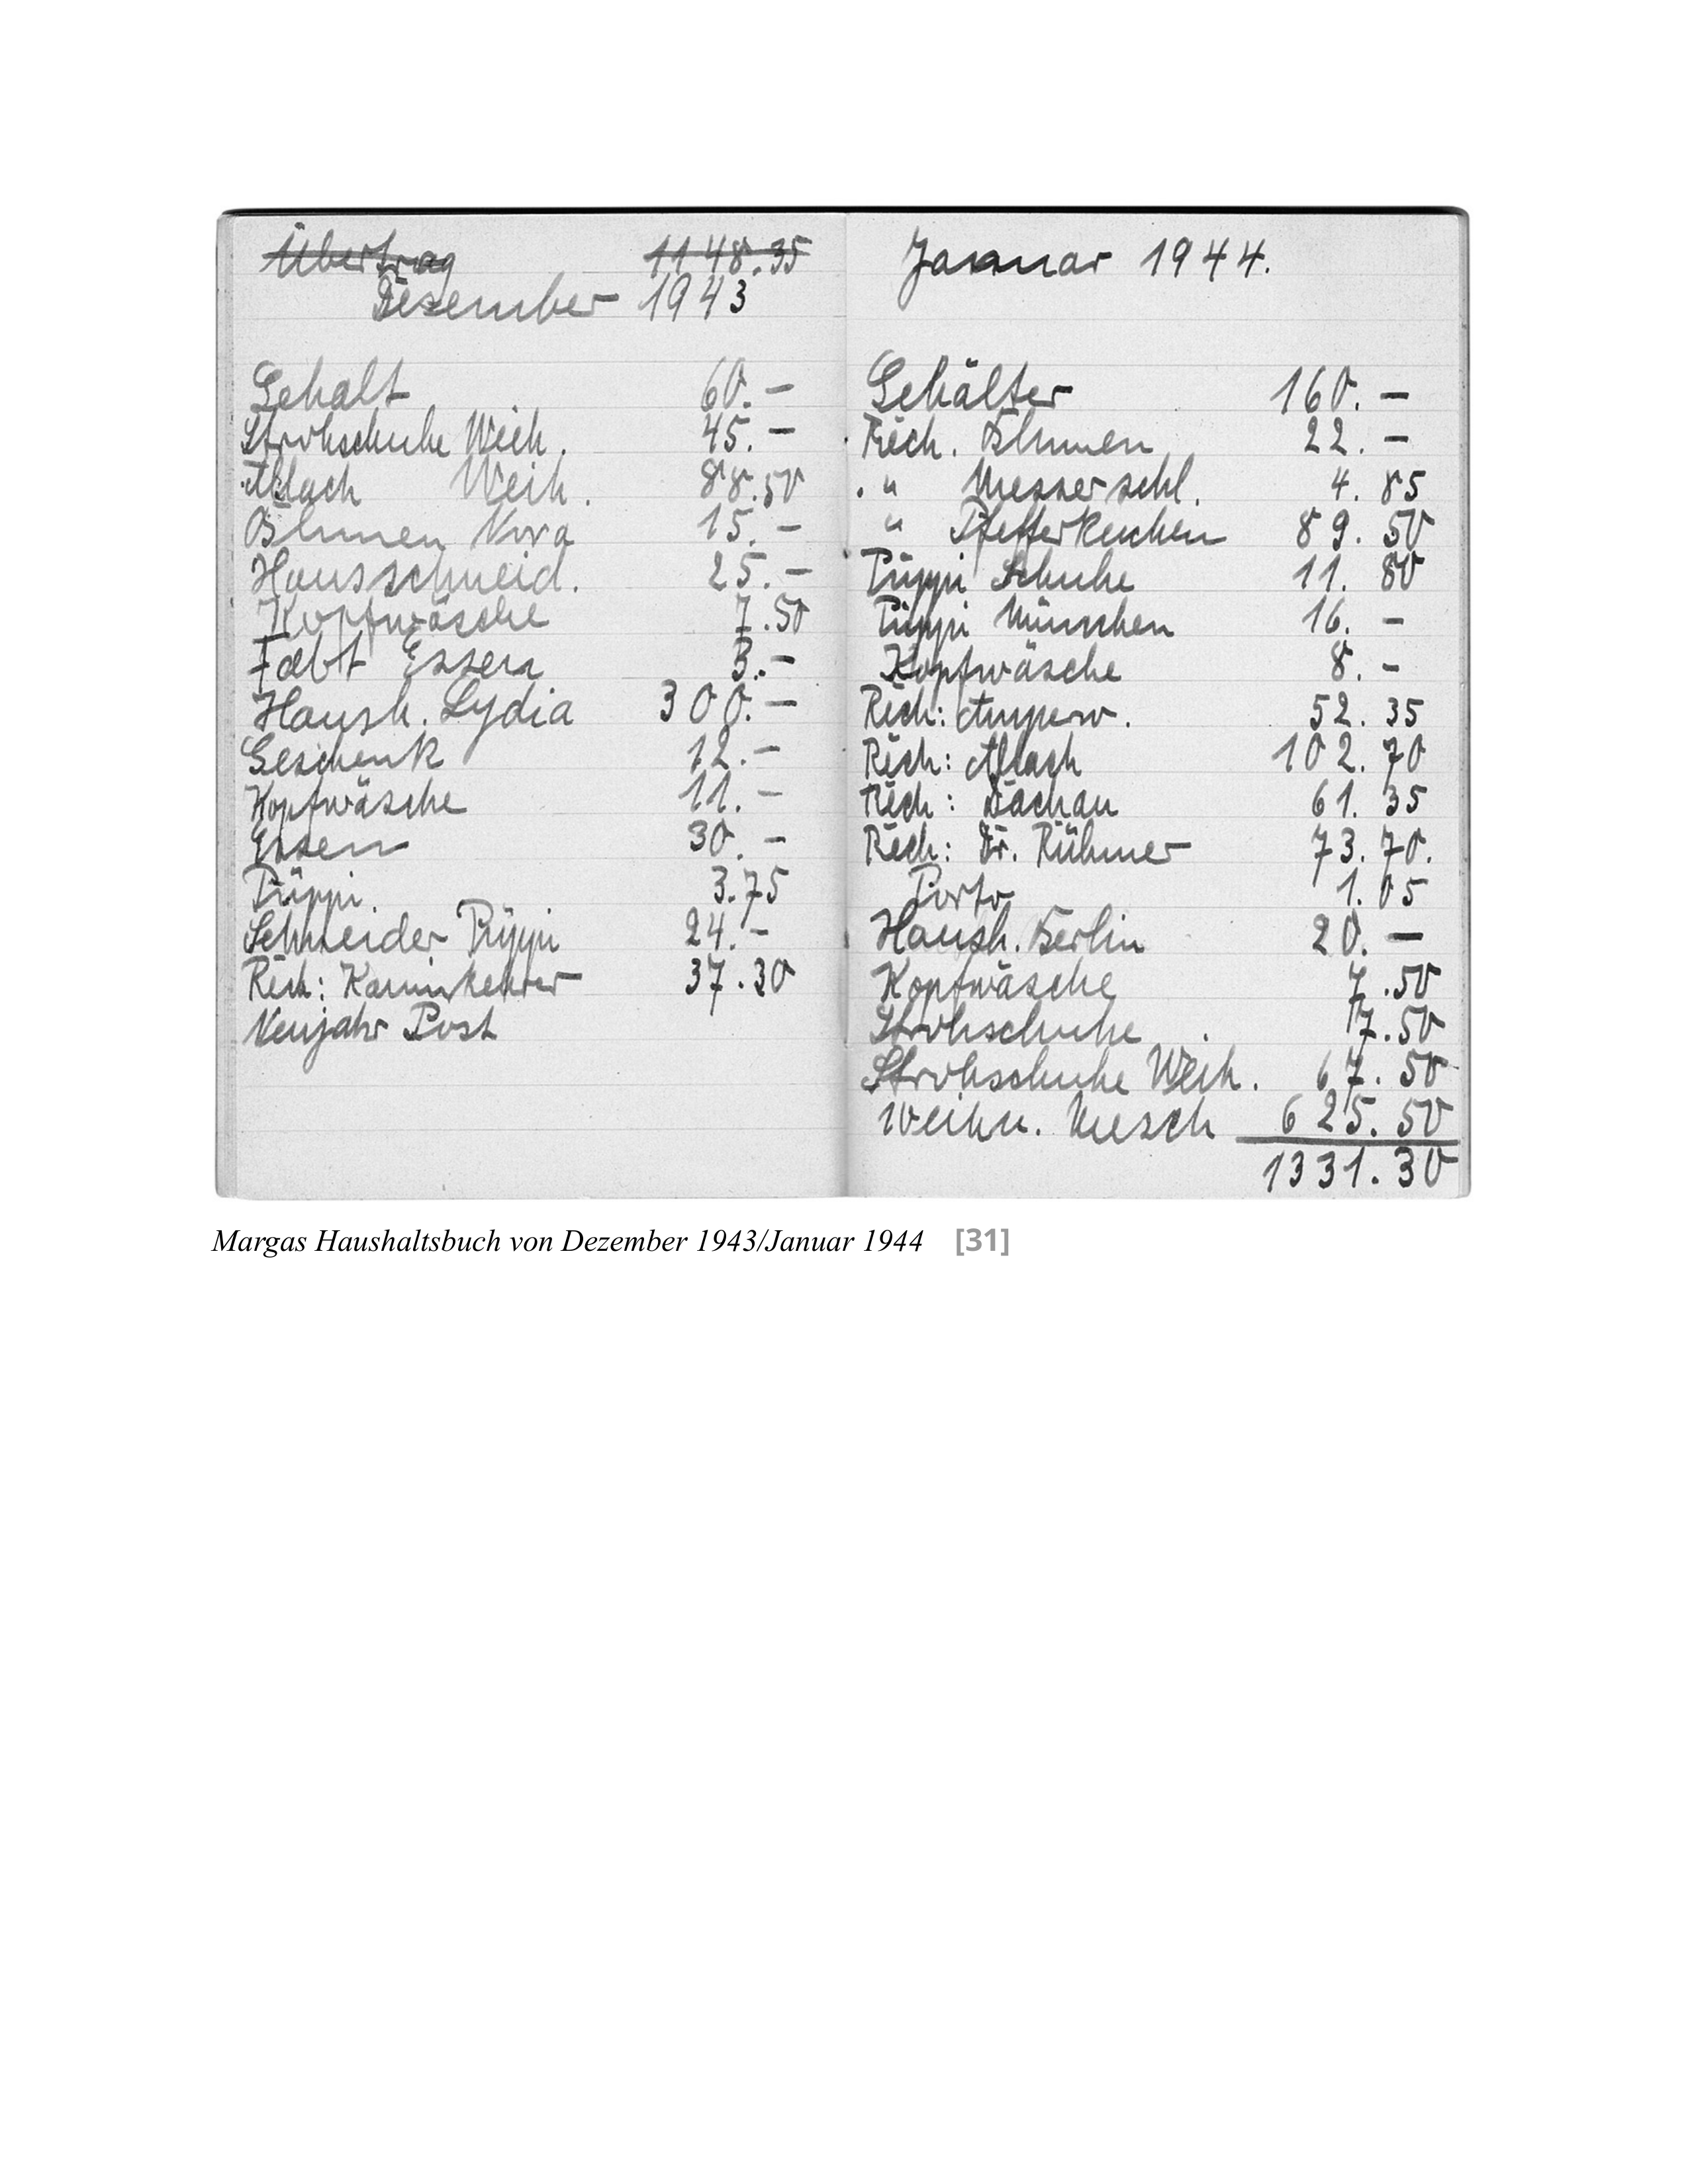 Übertrag 1148.35
Dezember 1943
Gehalt 60.–
Strohschuhe Weih. 45.–
Allach Weih. 88.50
Blumen 15.–
Hausschneid. 25.–
Kopfwäsche 7.50
Essen 3.–
Haush. Lydia 300.–
Geschenk 12.–
Kopfwäsche 11.–
Essen 30.–
Püppi. 3.75
Schneider Püppi 24.–
Rech: Kaminkehrer 37.30
Neujahr Post
Januar 1944.
Gehälter 160.–
Rech. Blumen 22.–
" Messerschl. 4.85
" Pfefferkuchen 89.50
Püppi Schuhe 11.80
Püppi München 16.–
Kopfwäsche 8.–
Rech: Amperw. 52.35
Rech: Allach 102.70
Rech: Dachau 61.35
Rech: Dr. Rühmer 73.70.
Porto 1.05
Haush. Berlin 20.–
Kopfwäsche 7.50
Strohschuhe 7.50
Strohschuhe Weih. 67.50
Weihn. 625.50
1331.30
Margas Haushaltsbuch von Dezember 1943/Januar 1944 [31]